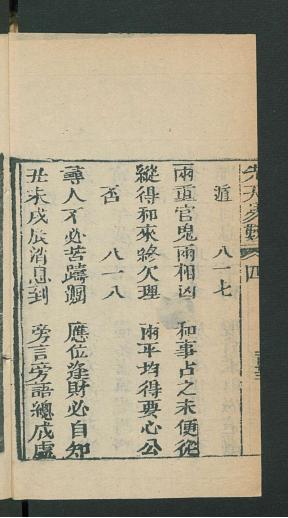 先天易數 卷四
遯 八一七
兩重官鬼兩相凶 和事占之未便從
縱得和來終欠理 兩平均得要心公
否 八一八
尋人不必苦躊躇 應位逢財必自知
丑未戌辰消息到 旁言旁語總成虛